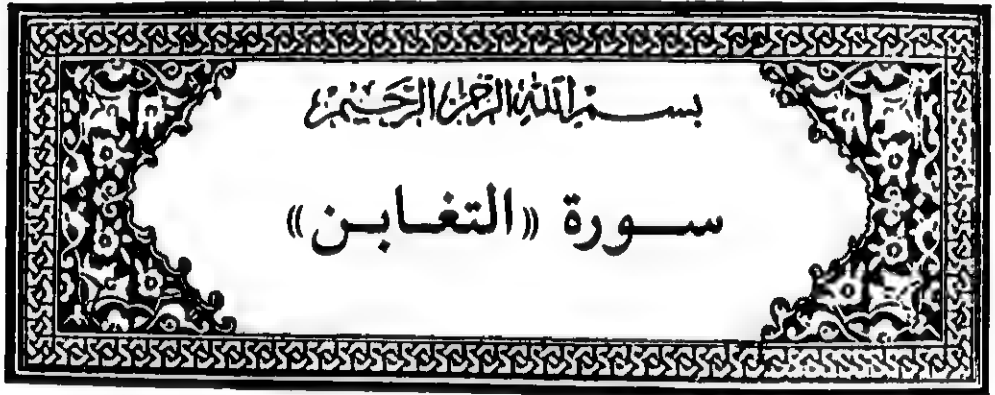 بسم الله الرحمن الرحيم
سورة «التغابن»